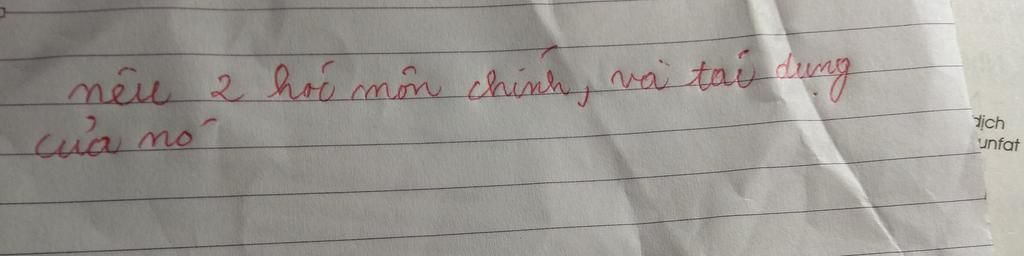 nêu 2 hoí môn chính, và taí dụng
của nó
dịch
unfat